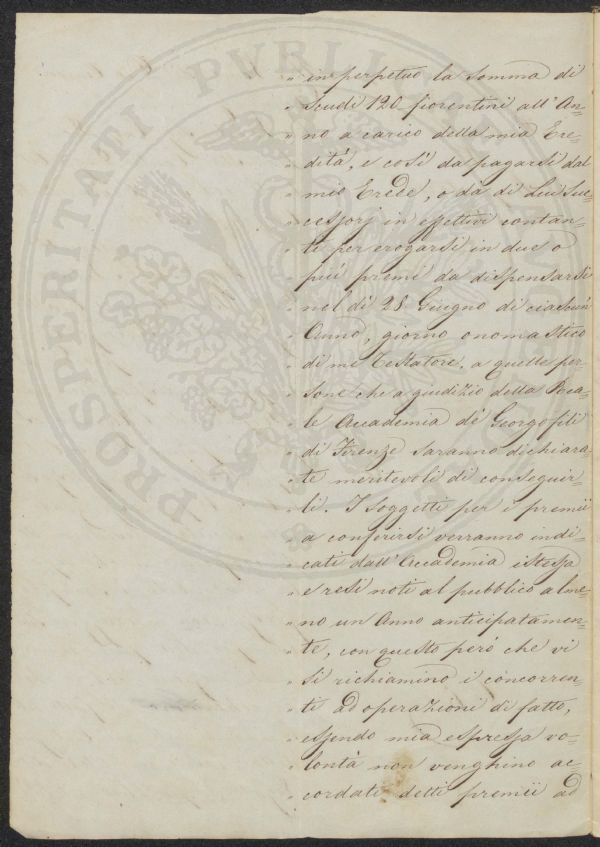 " in perpetuo la somma di
" scudi 120 fiorentini all'An=
" no a carico della mia Ere=
" dità, e così da pagarsi dal
" mio Erede, o da di Lui Suc=
" cessorj in effettivi contan=
" ti per erogarsi in due o
" più premi da dispensarsi
" nel dì 28 Giugno di ciascun
" Anno, giorno onomastico
" di me Testatore, a quelle per=
" sone che a giudizio della Rea=
" le Accademia de' Georgofili
" di Firenze saranno dichiara=
" te meritevoli di conseguir=
" li. I soggetti per i premii
" a conferirsi verranno indi=
" cati dall'Accademia istessa
" e resi noti al pubblico alme=
" no un Anno anticipatamen=
" te, con questo però che vi
" si richiamino i concorren=
" ti ad operazioni di fatto,
" essendo mia espressa vo=
" lontà non venghino ac=
" cordati detti premii ad
PROSPERITATI PVBLICAE